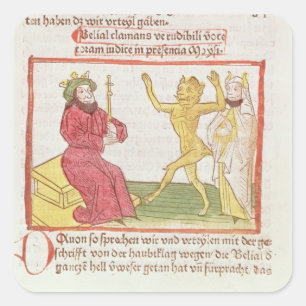 ten haben dz wir vrteyl gåben
Belial clamans ve crudibili vöte
coram iudice in presencia Moysi
Quon so sprachen wir vnd vrteylen mit der ge
schrifft von der haubtklag wegen/ die Belial d
gantzen hell vnser getan hat vn̄ fürpracht/ das